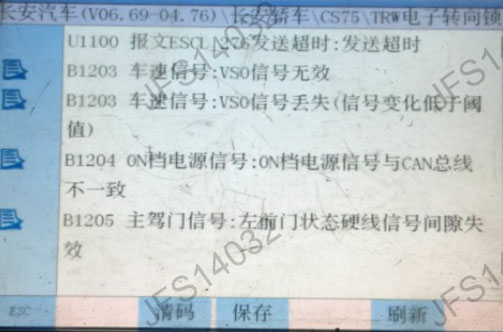 长安汽车(V06.69-04.76)\长安轿车\CS75\TRW电子转向锁
U1100 报文ESCL_276发送超时:发送超时
B1203 车速信号:VSO信号无效
B1203 车速信号:VSO信号丢失(信号变化低于阈
值)
B1204 ON档电源信号:ON档电源信号与CAN总线
不一致
B1205 主驾门信号:左前门状态硬线信号间隙失
效
ESC 清码 保存 刷新
JFS14032
JFS14032
JFS14032
JFS14032